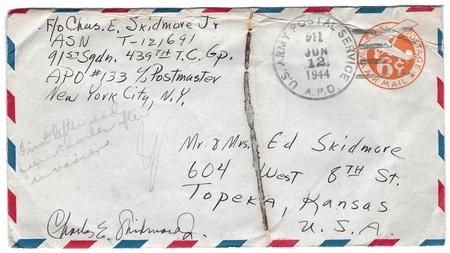 F/O Chas. E. Skidmore Jr
ASN T-121691
91st Sqdn. 439TH T.C. Gp.
APO #133 c/o Postmaster
New York City, N.Y.
U.S. ARMY POSTAL SERVICE
JUN
12
1944
A.P.O.
6¢
AIR MAIL
First letter
from Charles after
invasion
Mr. & Mrs. Ed Skidmore
604 West 8TH St.
Topeka, Kansas
U.S.A.
Charles E. Skidmore Jr.